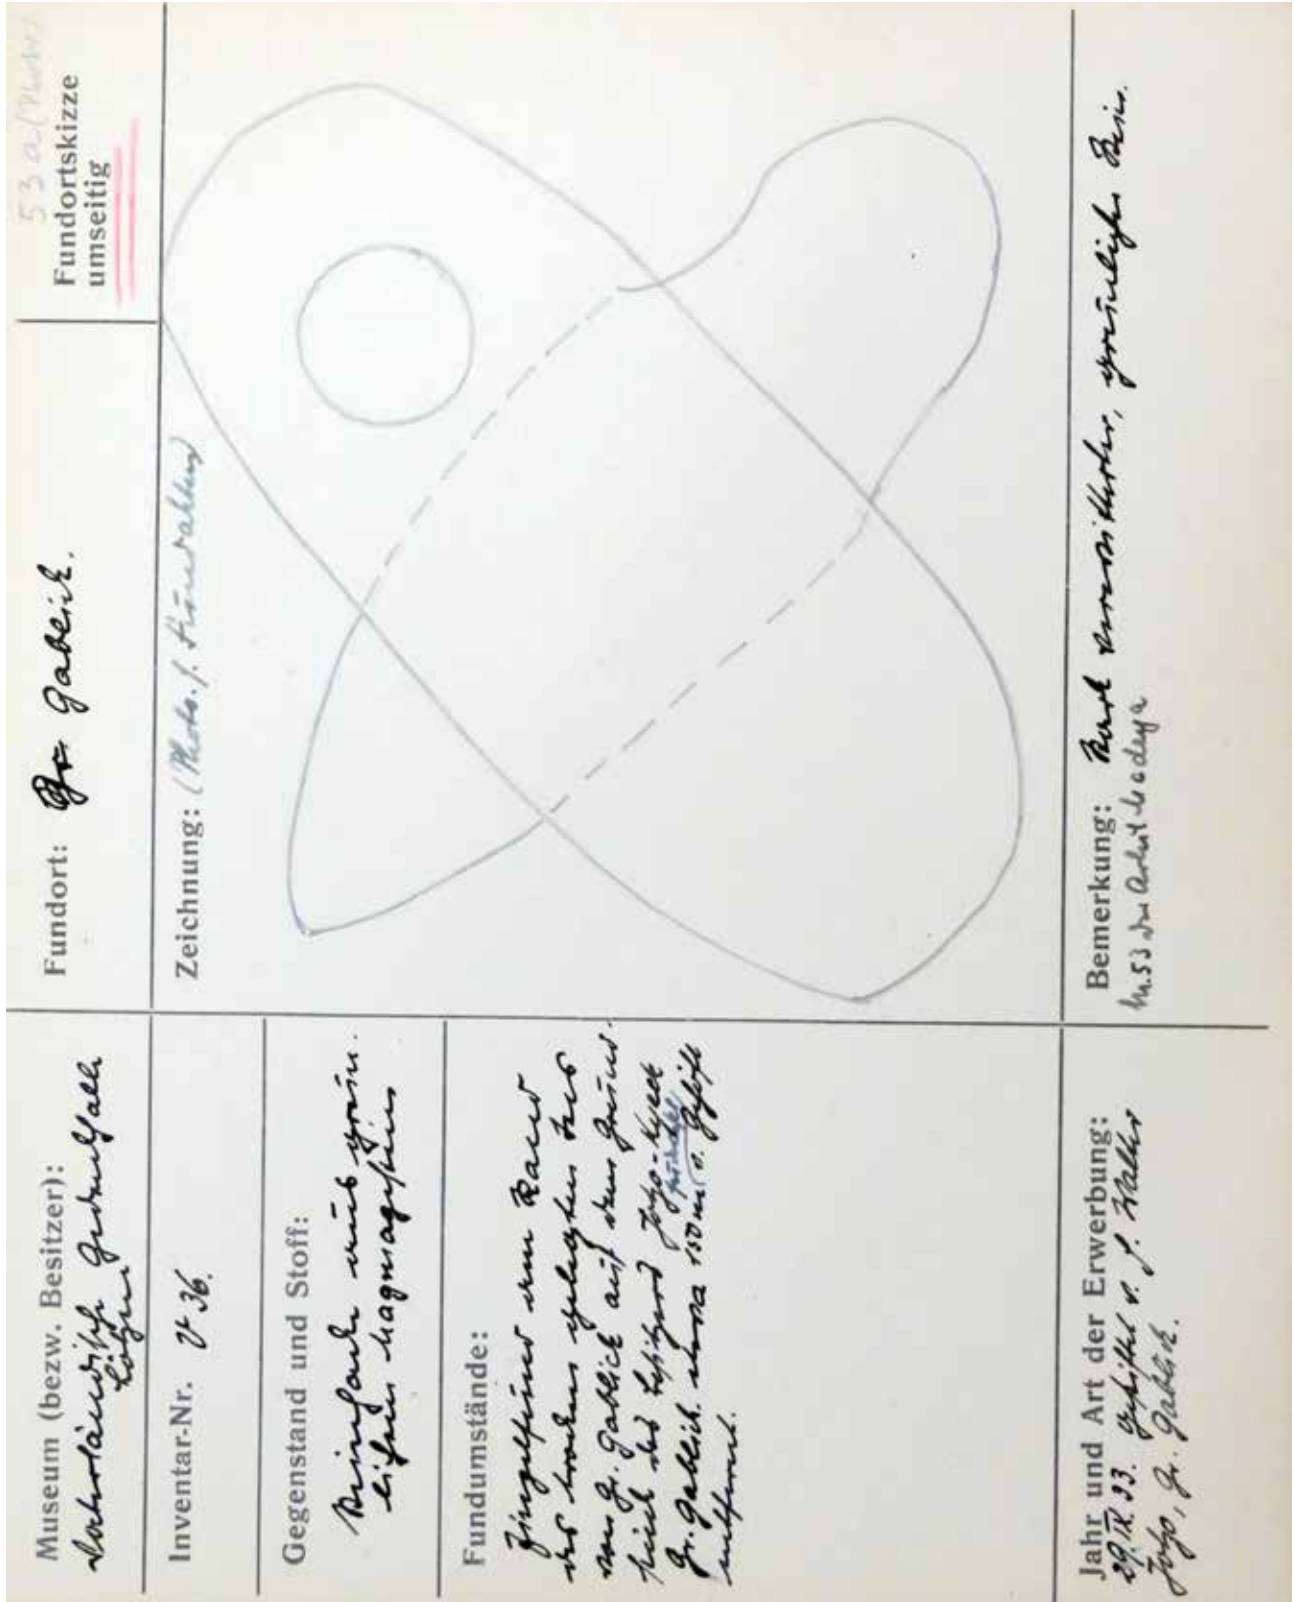 Museum (bezw. Besitzer):
Vaterländische Gedenkhalle
Lötzen
Inventar-Nr. V 36.
Gegenstand und Stoff:
Steinhacke aus grün-
lichem Magmagestein
Fundumstände:
Einzelfund am Rand
des trocken gelegten Sees
von Gr. Gablick auf dem Grund-
stück des Besitzers Jotzo-
Gr. Gablick. etwa 150 m v. Gehöft
entfernt.
Jahr und Art der Erwerbung:
29. IX. 33. Gestiftet v. H. Walter
Jotzo, Gr. Gablick.
Fundort: Gr. Gablick.
53 a (Photo)
Fundortskizze
umseitig
Zeichnung: (Photo. f.
Bemerkung: Stark verwitterter, grünlicher Stein.
Nr. 53 der